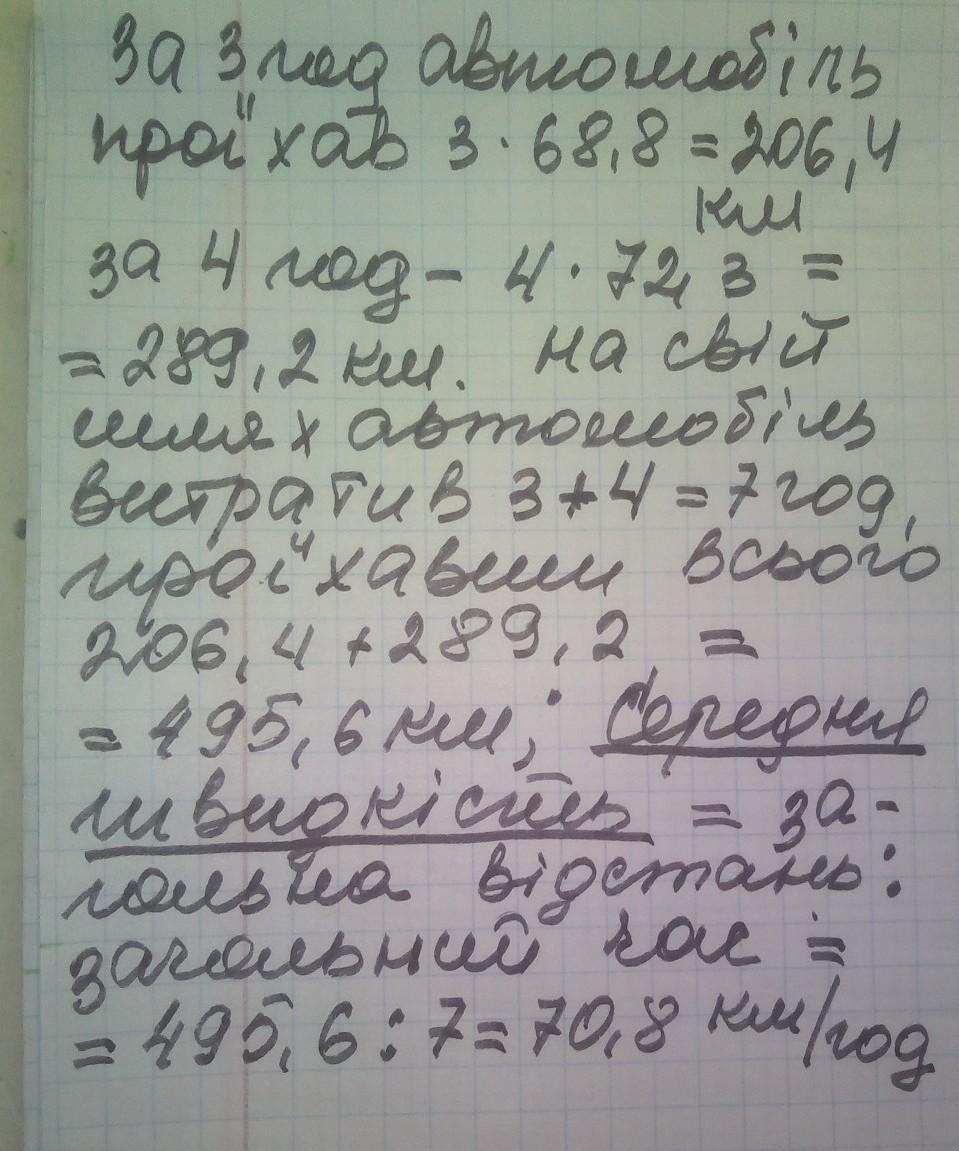 За 3 год автомобіль
проїхав 3 · 68,8 = 206,4
км
за 4 год – 4 · 72,3 =
= 289,2 км. На свій
шлях автомобіль
витратив 3 + 4 = 7 год,
проїхавши всього
206,4 + 289,2 =
= 495,6 км; Середня
швидкість = за-
гальна відстань :
загальний час =
= 495,6 : 7 = 70,8 км/год